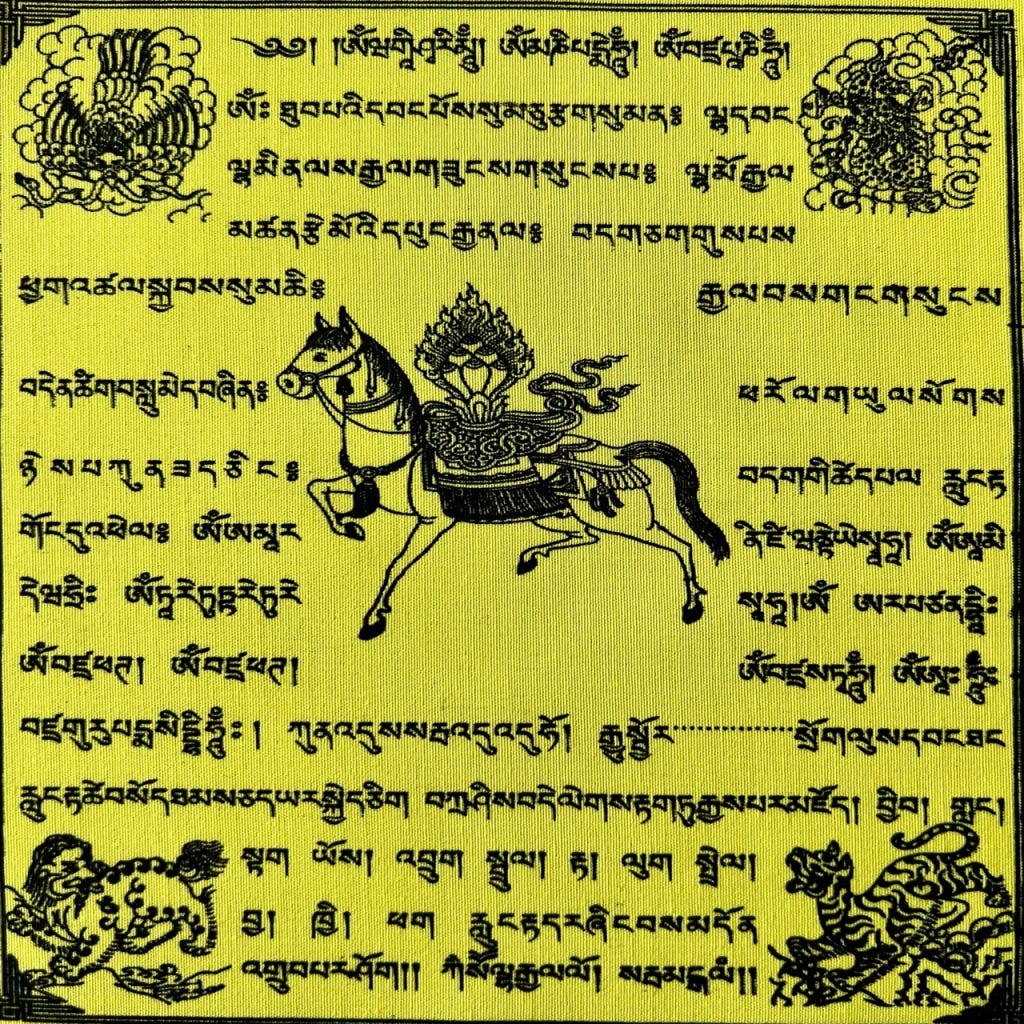 ༄༅། །ཨོཾ་ཝཱ་གཱི་ཤྭ་རི་མཱུྃ། ཨོཾ་མ་ཎི་པདྨེ་ཧཱུྃ། ཨོཾ་བཛྲ་པཱ་ཎི་ཧཱུྃ།
ཨོཾཿ ཐུབ་པའི་དབང་པོ་སུམ་ཅུ་རྩ་གསུམ་ན༔ ལྷ་དབང
ལྷ་མིན་ལས་རྒྱལ་གཟུངས་གསུངས་པ༔ ལྷ་མོ་རྒྱལ
མཚན་རྩེ་མོའི་དཔུང་རྒྱན་ལ༔ བདག་ཅག་གུས་པས
ཕྱག་འཚལ་སྐྱབས་སུ་མཆི༔ རྒྱལ་བས་གང་གསུངས
བདེན་ཚིག་བསླུ་མེད་བཞིན༔ ཕ་རོལ་གཡུལ་སོགས
ཉེས་པ་ཀུན་ཟད་ཅིང༔ བདག་གི་ཚེ་དཔལ རླུང་རྟ
གོང་དུ་འཕེལ༔ ཨོཾ་ཨ་མཱ་ར ནི་ཛི་ཝནྟི་ཡེ་སྭཱ་ཧཱ། ཨོཾ་ཨཱ་མི
དེ་ཝ་ཧྲཱིཿ ཨོཾ་ཏཱ་རེ་ཏུཏྟཱ་རེ་ཏུ་རེ སྭཱ་ཧཱ། ཨོཾ ཨ་ར་པ་ཙ་ན་དྷཱིཿ
ཨོཾ་བཛྲ་ཕཊ། ཨོཾ་བཛྲ་ཕཊ། ཨོཾ་བཛྲ་སཏྭ་ཧཱུྃ། ཨོཾ་ཨཱཿ ཧཱུྃཿ
བཛྲ་གུ་རུ་པདྨ་སིདྡྷི་ཧཱུྃཿ། ཀུན་འདུས་ས་རྦ་འདུ་འདུ་ཧོ། རྒྱུ་སྦྱོར་་་་་་་་་་་་་་་་སྲོག་ལུས་དབང་ཐང
རླུང་རྟ་ཚེ་བསོད་ཐམས་ཅད་ཡར་སྐྱེད་ཅིག བཀྲ་ཤིས་བདེ་ལེགས་རྟག་ཏུ་རྒྱས་པར་མཛོད། བྱི་བ། གླང།
སྟག ཡོས། འབྲུག སྦྲུལ། རྟ། ལུག སྤྲེལ།
བྱ། ཁྱི། ཕག རླུང་རྟ་དར་ཞིང་བསམ་དོན
འགྲུབ་པར་ཤོག།། ཀི་སོ་ལྷ་རྒྱལ་ལོ། སརྦ་མངྒ་ལཾ།།